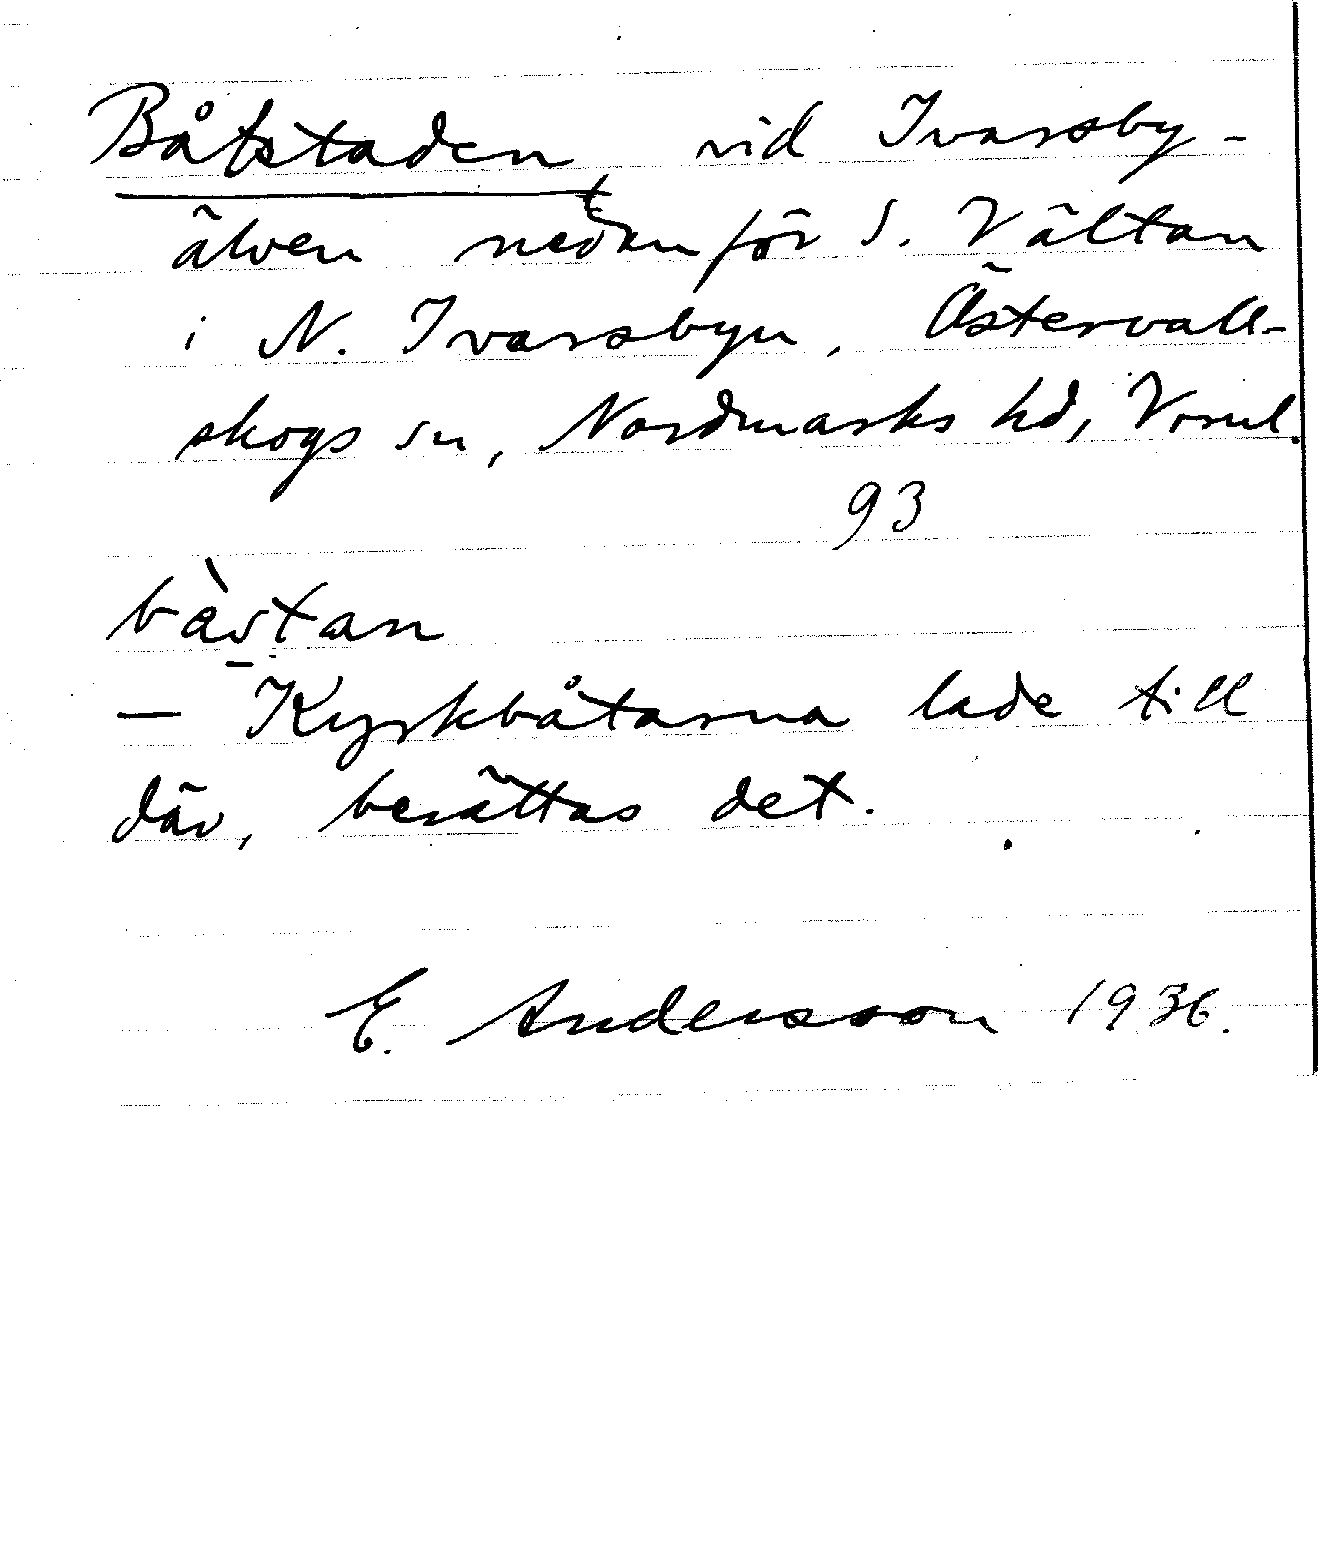 Båtstaden, vid Ivarsby-
älven nedanför S. Vältan
i N. Ivarsbyn, Östervall-
skogs sn, Nordmarks hd, Vrml.
93
bàstan
— Kyrkbåtarna lade till
där, berättas det.
E. Andersson 1936.